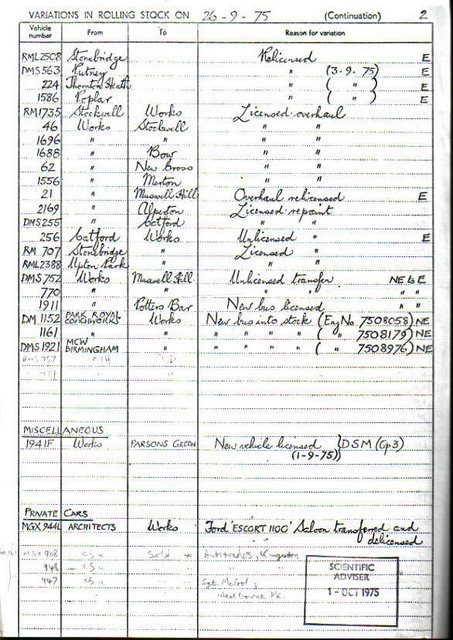 VARIATIONS IN ROLLING STOCK ON 26-9-75 (Continuation) 2
Vehicle number From To Reason for variation
RML2508 Stonebridge Relicensed E
DMS563 Putney " (3-9-75) E
224 Thornton Heath " ( " ) E
1586 Poplar " ( " ) E
RM1735 Stockwell Works Licensed overhaul
46 Works Stockwell " "
1696 " " " "
1688 " Bow " "
62 " New Cross " "
1556 " Merton " "
21 " Muswell Hill Overhaul relicensed E
2169 " Alperton Licensed repaint
DMS255 " Catford " "
256 Catford Works Unlicensed " E
RM 707 Stonebridge " Licensed "
RML2388 Upton Park " " "
DMS752 Works Muswell Hill Unlicensed transfer NE to E
770 " " " " " "
1911 " Potters Bar New bus licensed " "
DM 1152 PARK ROYAL COACHWORKS Works New bus into stock (Eng No 7508058) NE
1161 " " " " " " ( " 7508179) NE
DMS1921 MCW BIRMINGHAM " " " " " ( " 7508976) NE
MISCELLANEOUS
1941F Works PARSONS GREEN New vehicle licensed } DSM (Gp3)
(1-9-75)
PRIVATE CARS
MGX944L ARCHITECTS Works Ford 'ESCORT 1100' Saloon transferred and
delicensed
MGX 908 Sold
948 " "
947 Sgt.
SCIENTIFIC
ADVISER
1-OCT 1975